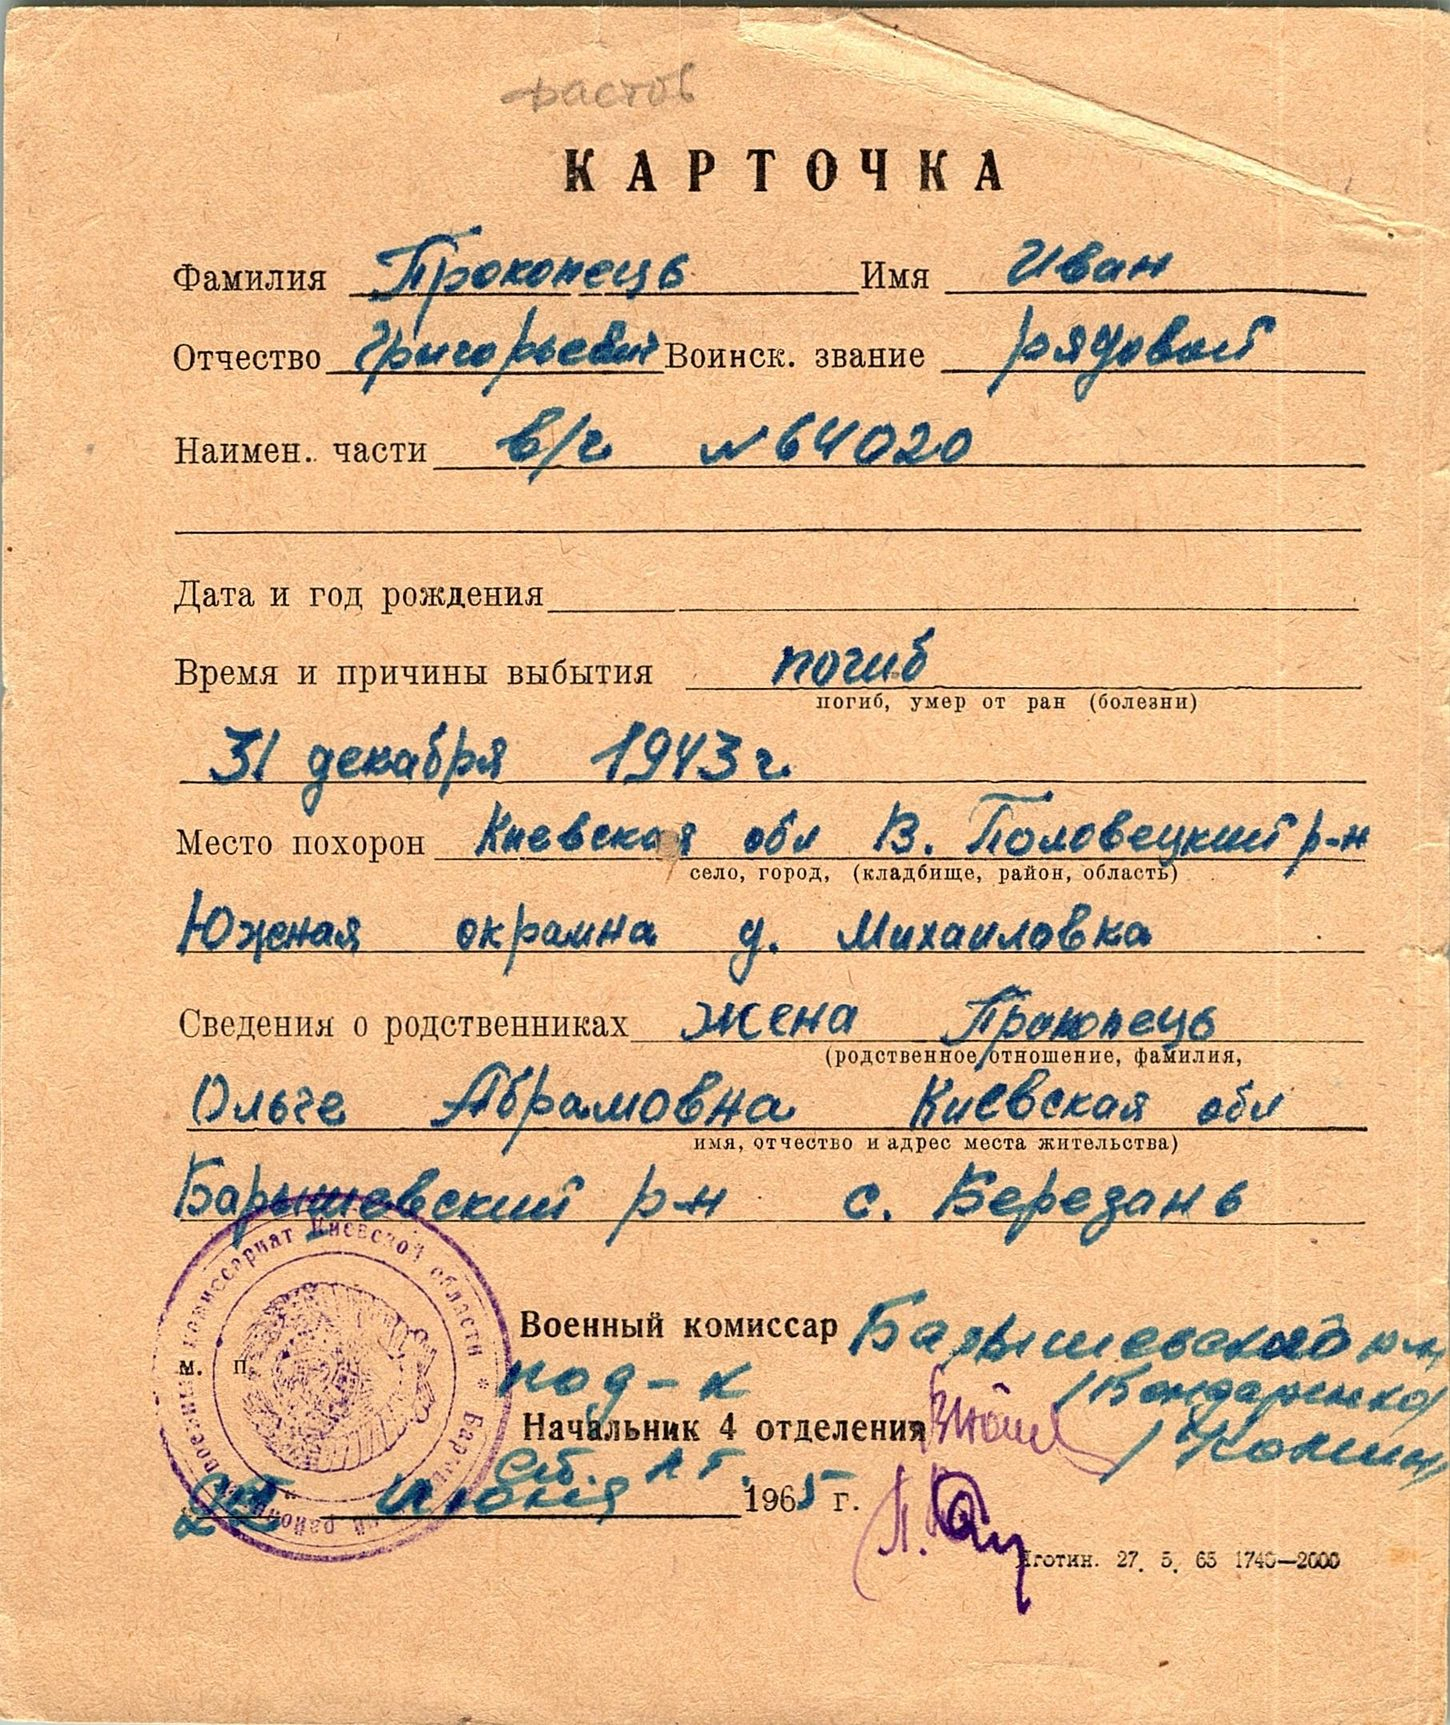 КАРТОЧКА
Фамилия Прокопець Имя Иван
Отчество Григорьевич Воинск. звание рядовой
Наимен. части в/ч №64020
Дата и год рождения
Время и причины выбытия погиб
погиб, умер от ран (болезни)
31 декабря 1943 г.
Место похорон Киевская обл В. Половецкий р-н
село, город, (кладбище, район, область)
Южная окраина д. Михайловка
Сведения о родственниках жена Прокопець
(родственное отношение, фамилия,
Ольге Абрамовна Киевская обл
имя, отчество и адрес места жительства)
Барышевский р-н с. Березань
Военный комиссар Барышевского р-на
м. п.
под-к /Бондаренко/
Начальник 4 отделения
ст. л-т.
июня 1965 г.
Яготин. 27. 5. 65 1740—2000
военный комиссариат Киевской области *